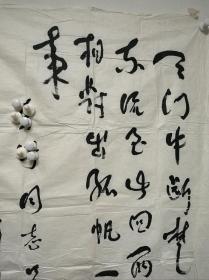 天门中斷楚
东流至此回两
相對出孤帆一
来
同志